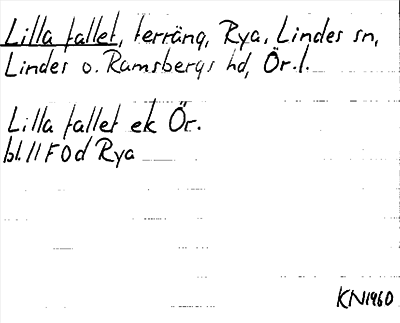 Lilla fallet, terräng, Rya, Lindes sn,
Lindes o. Ramsbergs hd, Ör. l.
Lilla fallet ek Ör.
bl. 11 F 0d Rya
KN1960